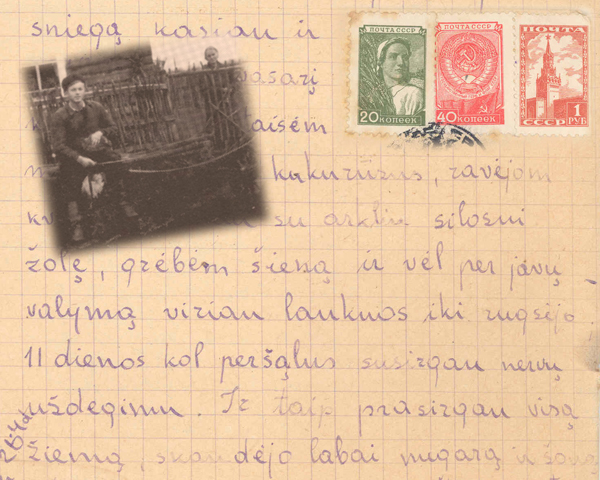 sniegą kasiau ir
vasarį
aisėm
kukurūzus, ravėjom
su arkliu silosui
žolę, grėbėm šieną ir vėl per javų
valymą viriau laukuos iki rugsėjo
11 dienos kol peršąlus susirgau nervų
uždegimu. Ir taip prasirgau visą
žiemą, skaudėjo labai nugarą ir šoną
ПОЧТА СССР
20 КОПЕЕК
ПОЧТА СССР
40 КОПЕЕК
ПОЧТА
СССР
1
РУБ